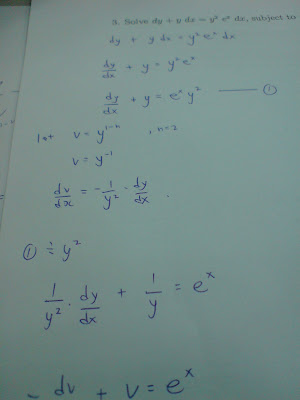 3. Solve dy + y dx = y² eˣ dx, subject to
dy + y dx = y² eˣ dx
dy/dx + y = y² eˣ
dy/dx + y = eˣ y² ——— ①
let v = y¹⁻ⁿ , n=2
v = y⁻¹
dv/dx = - 1/y² · dy/dx .
① ÷ y²
1/y² · dy/dx + 1/y = eˣ
- dv + v = eˣ